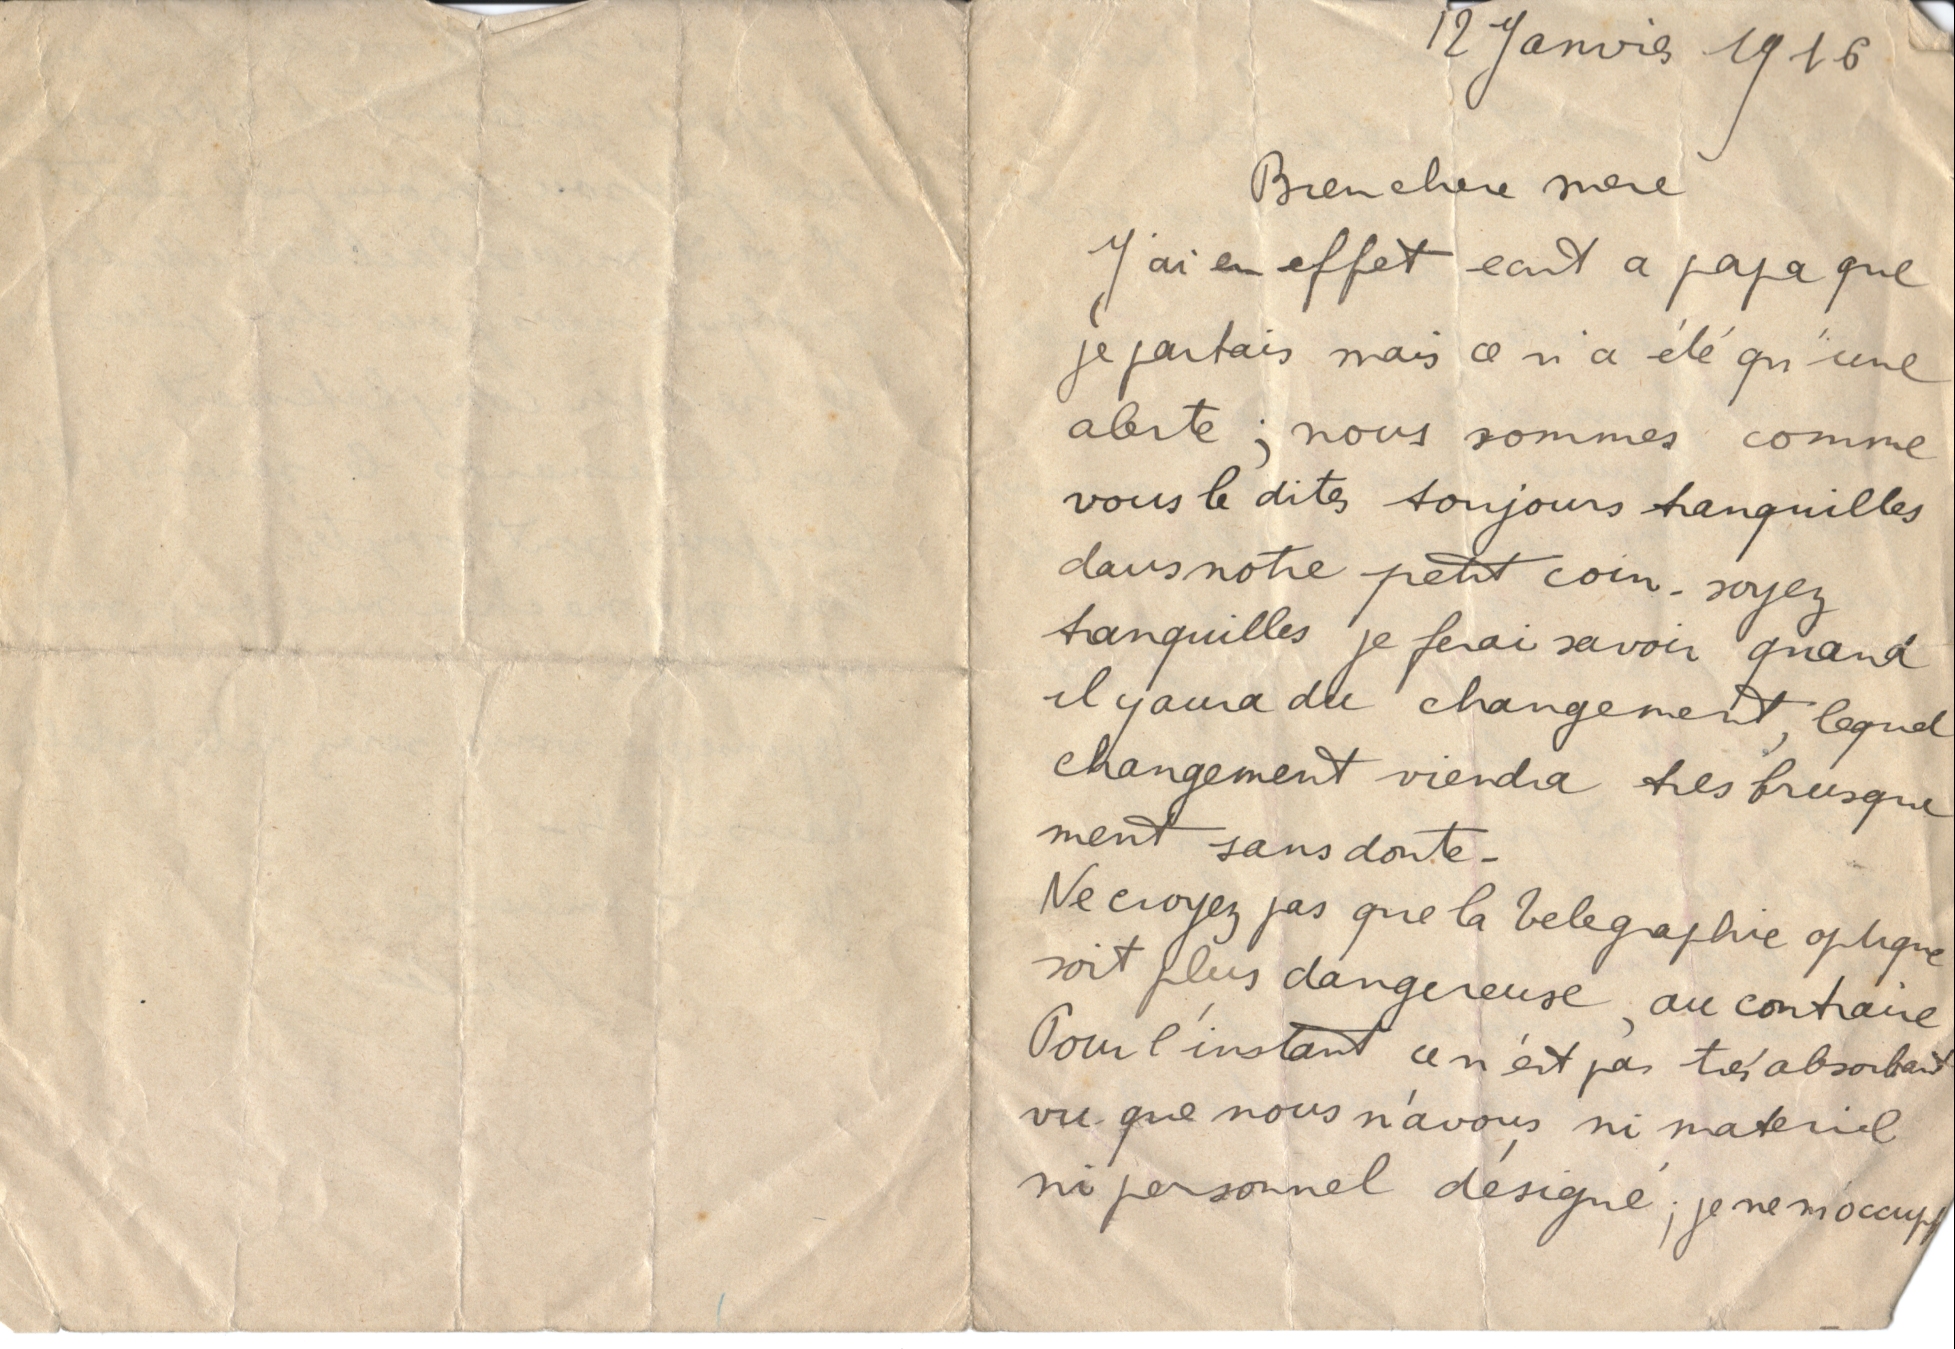 12 Janvier 1916
Bien chere mere
J'ai en effet ecrit a papa que
je partais mais ce n'a été qu'une
alerte ; nous sommes comme
vous le dites toujours tranquilles
dans notre petit coin - soyez
tranquilles je ferai savoir quand
il y aura du changement, lequel
changement viendra tres brusque
ment sans doute -
Ne croyez pas que la telegraphie optique
soit plus dangereuse, au contraire
Pour l'instant ce n'est pas très absorbant
vu que nous n'avons ni materiel
ni personnel désigné ; je ne m'occupe